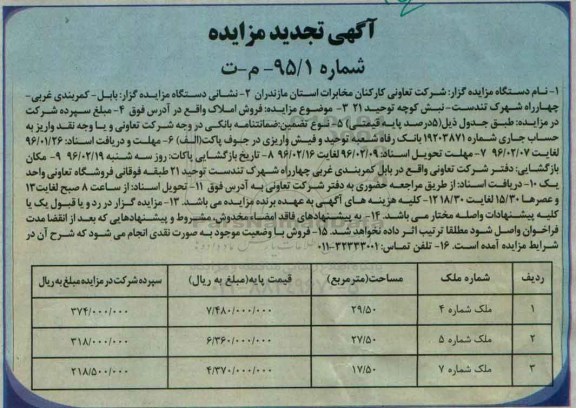 آگهی تجدید مزایده
شماره ۹۵/۱- م-ت
۱- نام دستگاه مزایده گزار: شرکت تعاونی کارکنان مخابرات استان مازندران ۲- نشانی دستگاه مزایده گزار: بابل- کمربندی غربی-
چهارراه شهرک تندست- نبش کوچه توحید ۲۱ ۳- موضوع مزایده: فروش املاک واقع در آدرس فوق ۴- مبلغ سپرده شرکت
در مزایده: طبق جدول ذیل (۵درصد پایه قیمتی) ۵- نوع تضمین: ضمانتنامه بانکی در وجه شرکت تعاونی و یا وجه نقد واریز به
حساب جاری شماره ۱۹۲۰۳۸۷۱ بانک رفاه شعبه توحید و فیش واریزی در جوف پاکت(الف) ۶- مهلت و دریافت اسناد: ۹۶/۰۱/۲۶
لغایت ۹۶/۰۲/۰۷ ۷- مهلت تحویل اسناد: ۹۶/۰۲/۰۹ لغایت ۹۶/۰۲/۱۶ ۸- تاریخ بازگشایی پاکات: روز سه شنبه ۹۶/۰۲/۱۹ ۹- مکان
بازگشایی: دفتر شرکت تعاونی واقع در بابل کمربندی غربی چهارراه شهرک تندست توحید ۲۱ طبقه فوقانی فروشگاه تعاونی واحد
یک ۱۰- دریافت اسناد: از طریق مراجعه حضوری به دفتر شرکت تعاونی به آدرس فوق ۱۱- تحویل اسناد: از ساعت ۸ صبح لغایت۱۳
و عصرها ۱۵/۳۰ لغایت ۱۸/۳۰ ۱۲- کلیه هزینه های آگهی به عهده برنده مزایده می باشد. ۱۳- مزایده گزار در رد و یا قبول یک یا
کلیه پیشنهادات واصله مختار می باشد. ۱۴- به پیشنهادهای فاقد امضاء، مخدوش، مشروط و پیشنهادهایی که بعد از انقضا مدت
فراخوان واصل شود مطلقا ترتیب اثر داده نخواهد شد. ۱۵- فروش با وضعیت موجود به صورت نقدی انجام می شود که شرح آن در
شرایط مزایده آمده است. ۱۶- تلفن تماس: ۳۲۳۳۳۰۰۱-۰۱۱
ردیف شماره ملک مساحت(مترمربع) قیمت پایه(مبلغ به ریال) سپرده شرکت در مزایده مبلغ به ریال
۱ ملک شماره ۴ ۲۹/۵۰ ۷/۴۸۰/۰۰۰/۰۰۰ ۳۷۴/۰۰۰/۰۰۰
۲ ملک شماره ۵ ۲۷/۵۰ ۶/۳۶۰/۰۰۰/۰۰۰ ۳۱۸/۰۰۰/۰۰۰
۳ ملک شماره ۷ ۱۷/۵۰ ۴/۳۷۰/۰۰۰/۰۰۰ ۲۱۸/۵۰۰/۰۰۰